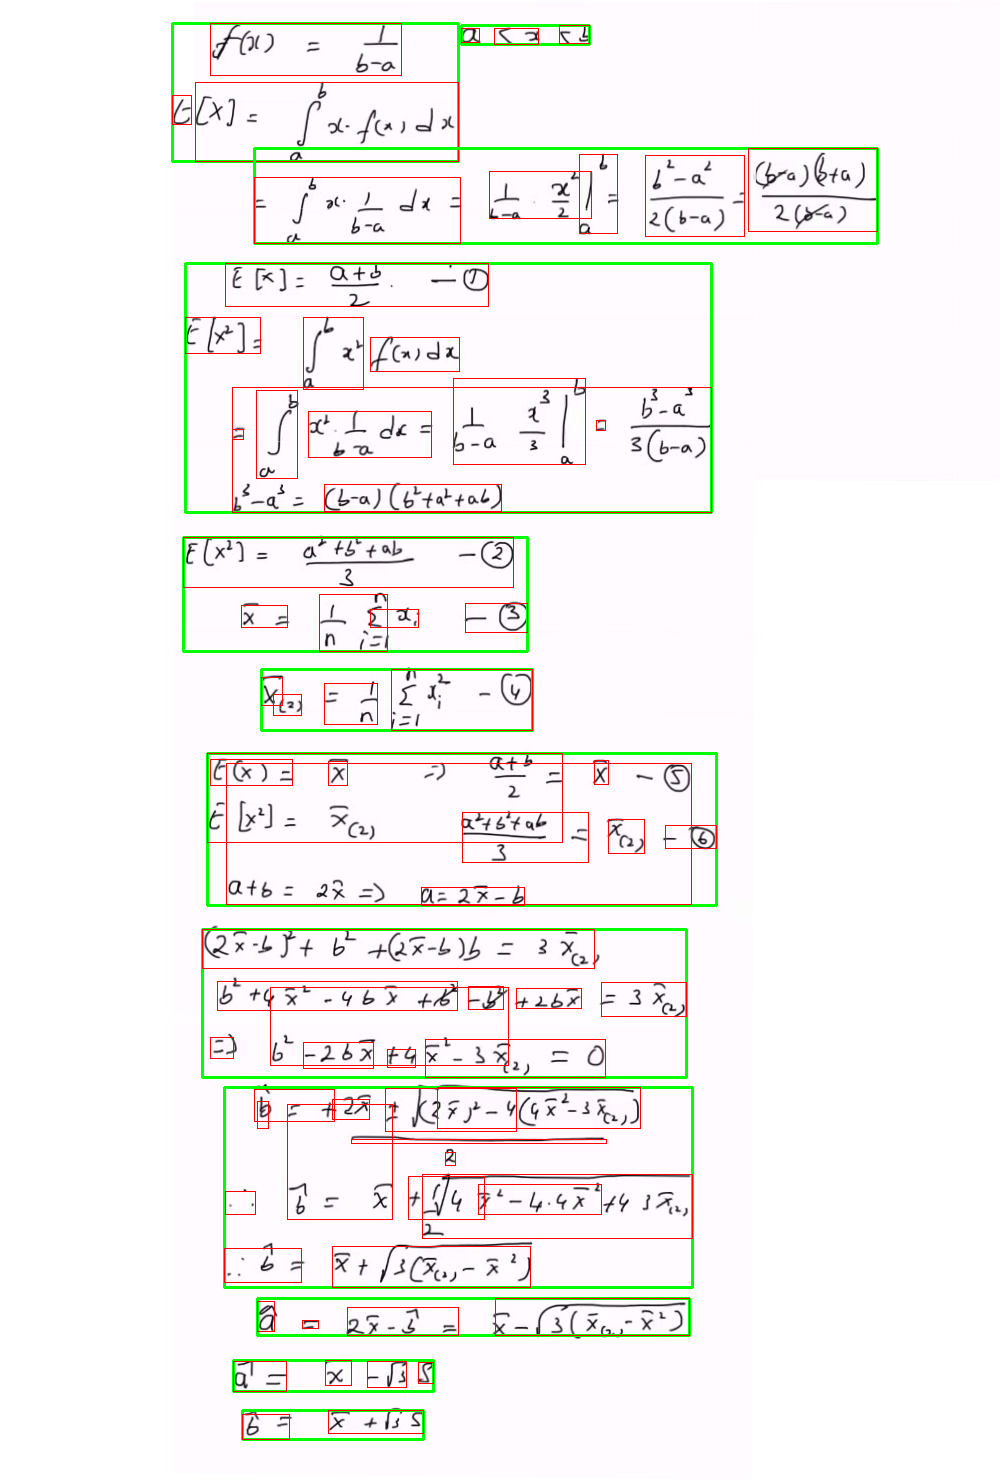 f(x) = 1/(b-a) a < x < b
E[X] = ∫_a^b x · f(x) dx
= ∫_a^b x · 1/(b-a) dx = 1/(b-a) · x²/2 |_a^b = (b²-a²)/(2(b-a)) = (b-a)(b+a)/(2(b-a))
E[X] = (a+b)/2 . — ①
E[X²] = ∫_a^b x² f(x) dx
= ∫_a^b x² · 1/(b-a) dx = 1/(b-a) x³/3 |_a^b = (b³-a³)/(3(b-a))
b³-a³ = (b-a)(b²+a²+ab)
E[X²] = (a²+b²+ab)/3 — ②
x̄ = 1/n Σ_{i=1}^n x_i — ③
x̄_(2) = 1/n Σ_{i=1}^n x_i² — ④
E(x) = x̄ ⇒ (a+b)/2 = x̄ — ⑤
E[x²] = x̄_(2) (a²+b²+ab)/3 = x̄_(2) — ⑥
a+b = 2x̄ ⇒ a = 2x̄-b
(2x̄-b)² + b² + (2x̄-b)b = 3x̄_(2)
b² + 4x̄² - 4bx̄ + b² - b² + 2bx̄ = 3x̄_(2)
⇒ b² - 2bx̄ + 4x̄² - 3x̄_(2) = 0
b̂ = (+2x̄ ± √((2x̄)² - 4(4x̄²-3x̄_(2))))/2
∴ b̂ = x̄ + 1/2 √(4x̄² - 4·4x̄² + 4 3x̄_(2))
∴ b̂ = x̄ + √(3(x̄_(2) - x̄²))
â = 2x̄ - b̂ = x̄ - √(3(x̄_(2) - x̄²))
â = x̄ - √3 S
b̂ = x̄ + √3 S